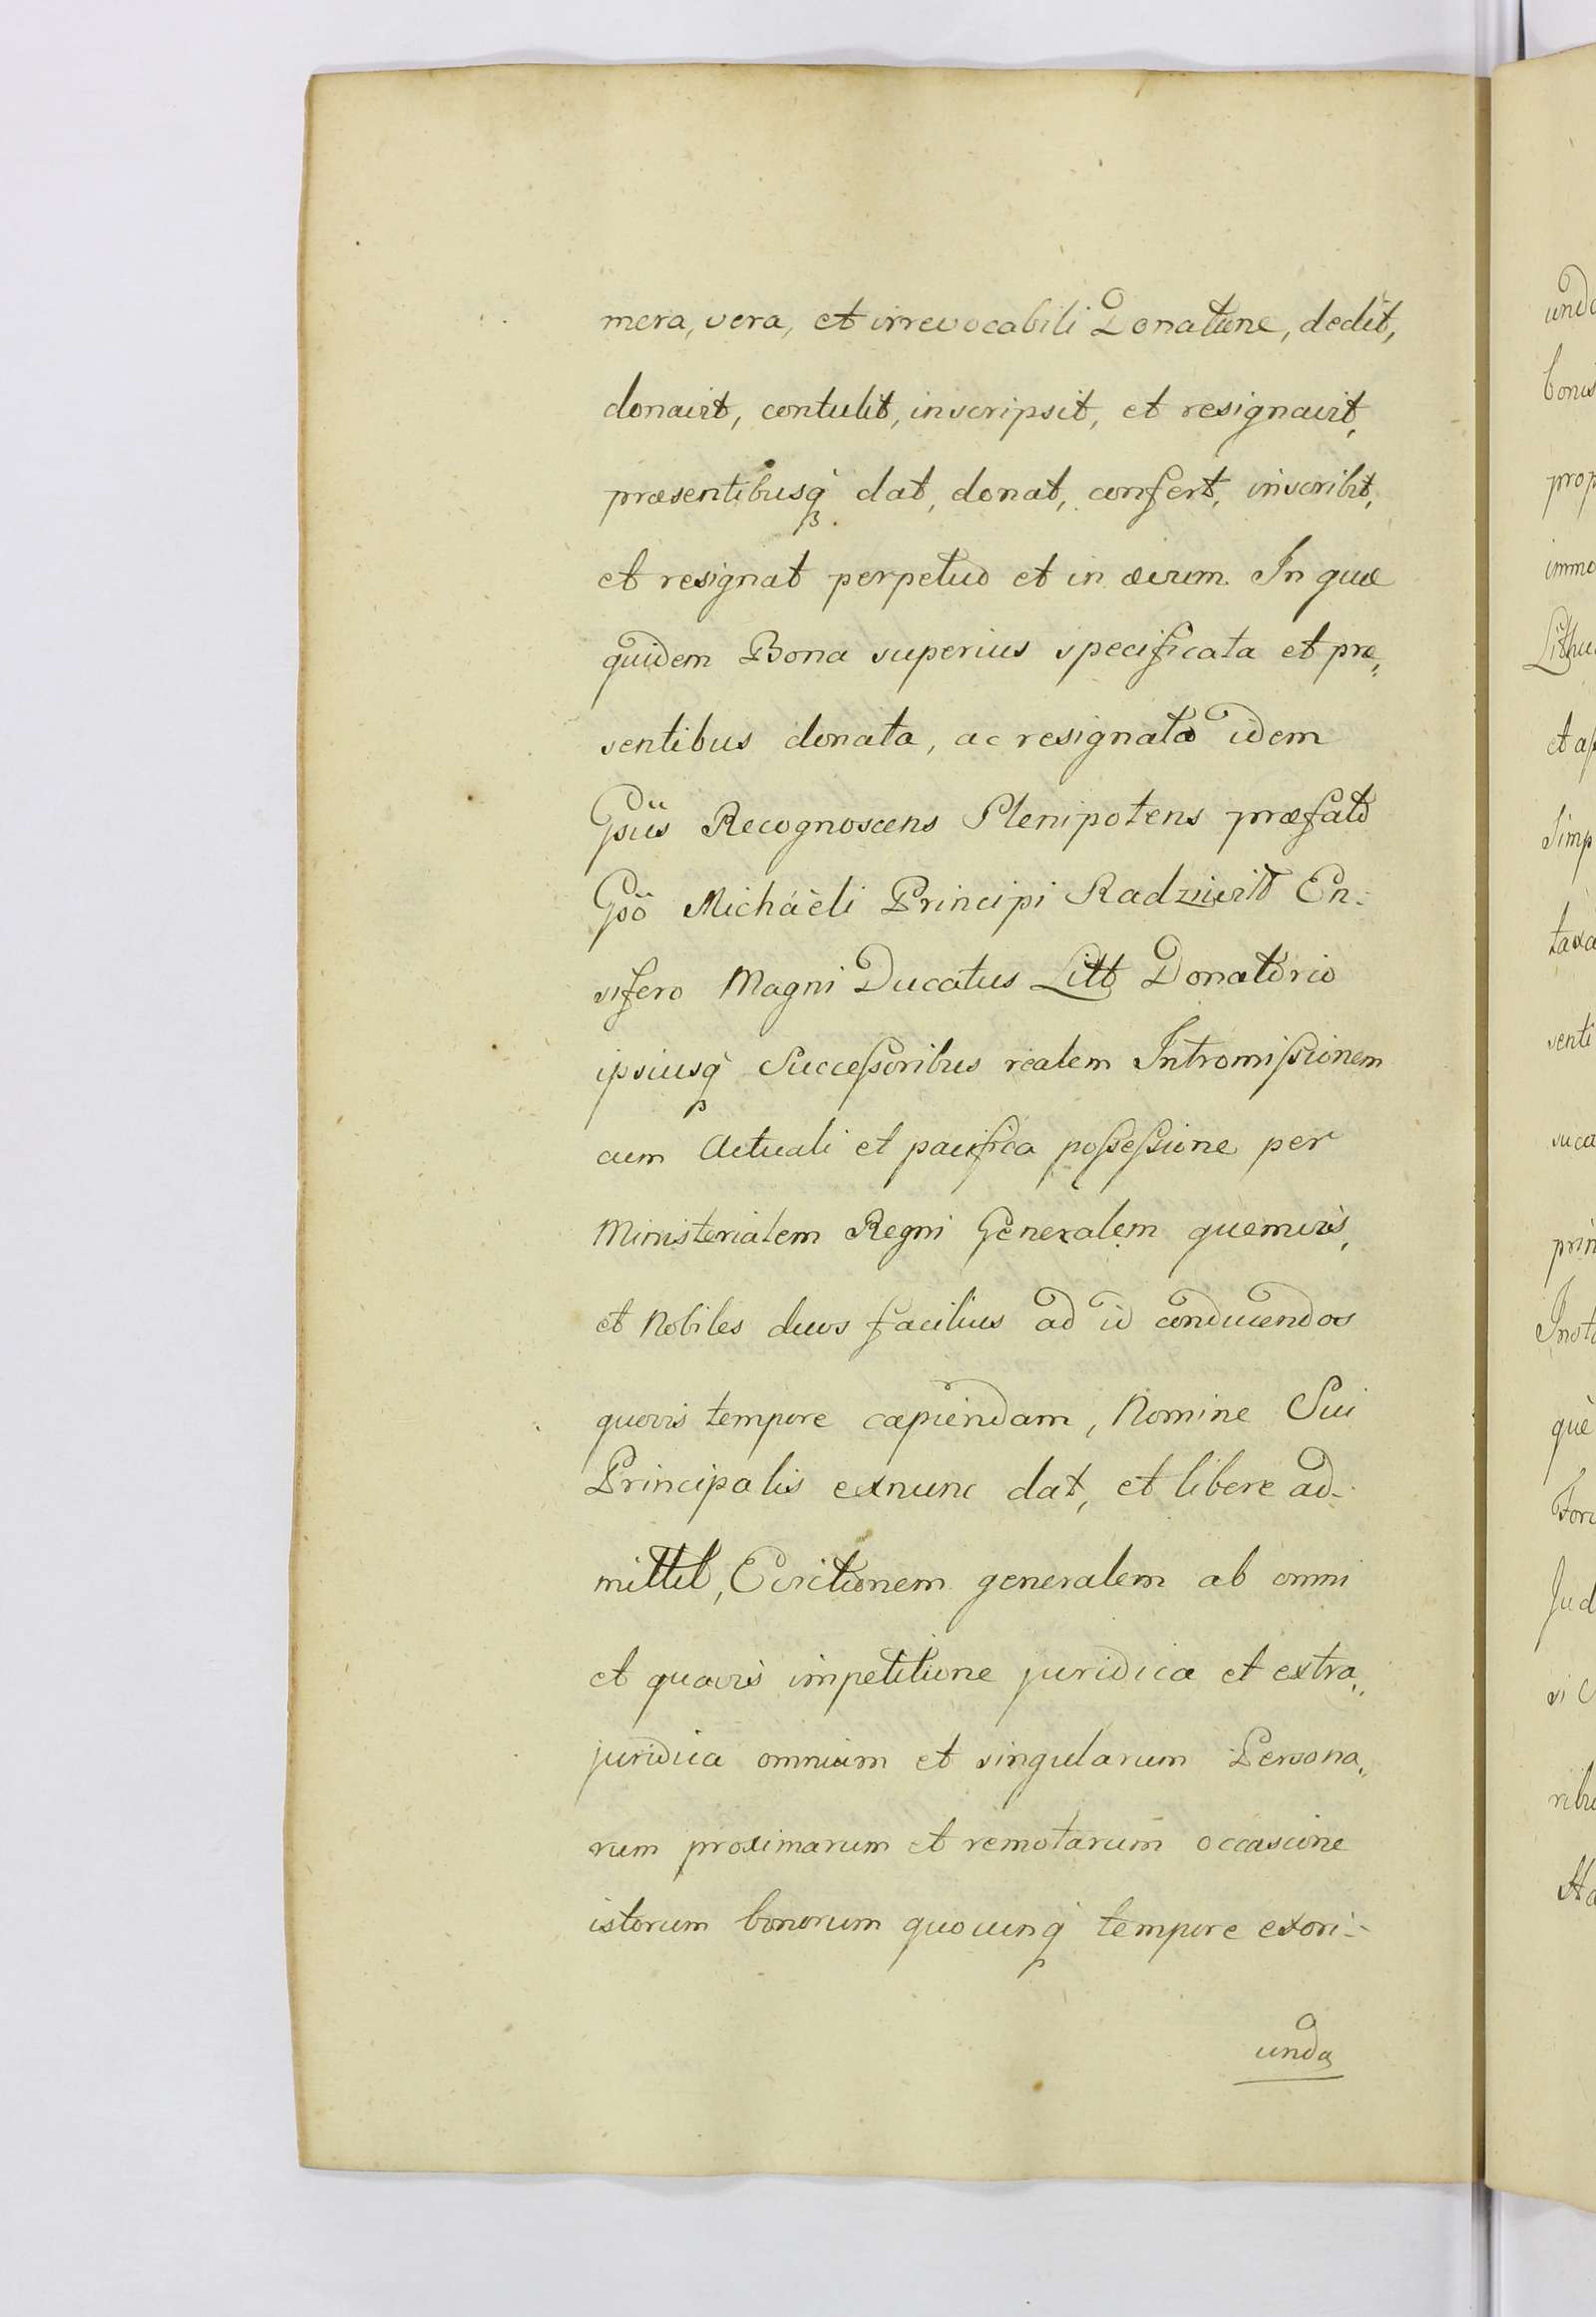 mera, vera, et irrevocabili Donatione, dedit,
donavit, contulit, inscripsit, et resignavit,
præsentibusq dat, donat, confert, inscribit,
et resignat perpetuo et in ævum. In quæ
quidem Bona superius specificata et præ„
sentibus donata, ac resignata idem
Gsüs Recognoscens Plenipotens præfato
Gsö Michaèli Principi Radziwił En-
sifero Magni Ducatus Litt Donatorio
ipsiusq Successoribus realem Intromissionem
cum Actuali et pacifica possessione per
Ministerialem Regni Generalem quemvis,
et Nobiles duos facilius ad id conducendos
quovis tempore capiendam, Nomine Sui
Principalis exnunc dat, et libere ad-
mittit, Evictionem generalem ab omni
et quavis impetitione juridica et extra„
juridica omnium et singularum Persona„
rum proximarum et remotarum occasione
istorum bonorum quocunq tempore exori-
unda
und
bonis
prop
immo
Lithu
et as
Simp
taxa
senti
succ
prin
Inst
què
Foru
Jud
si
ribu
Ha